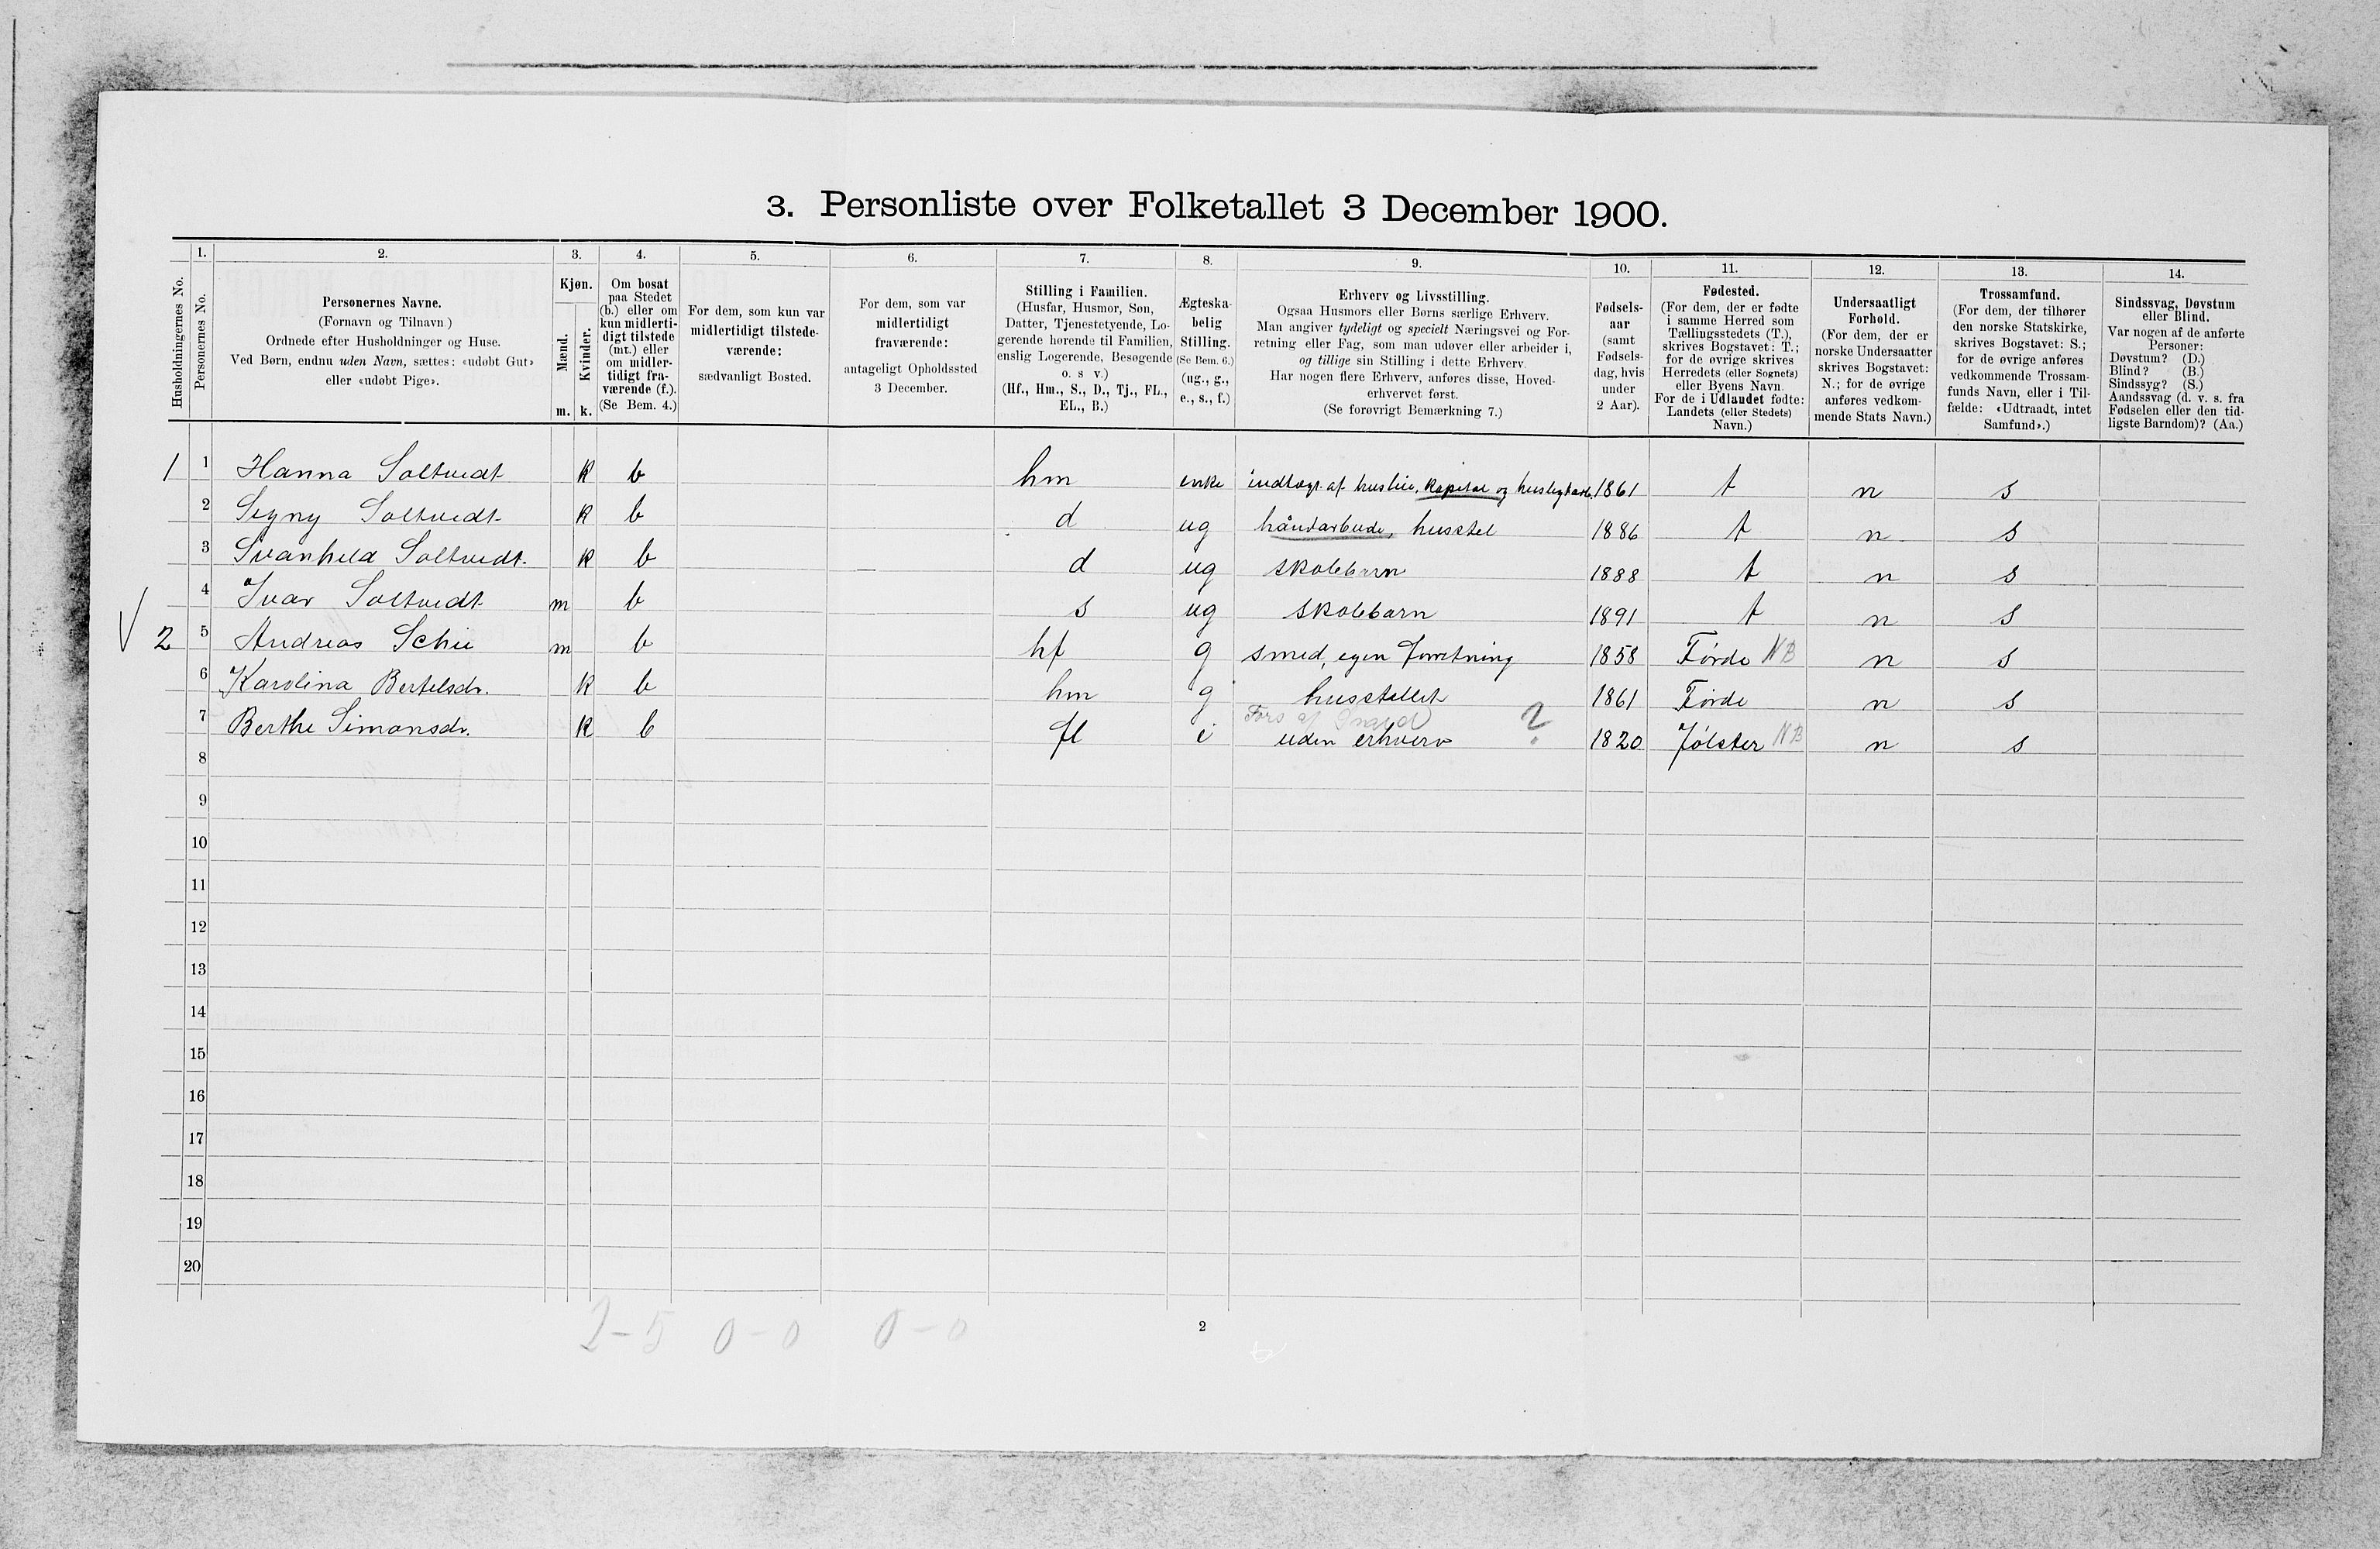 3. Personliste over Folketallet 3 December 1900.
1. 2. 3. 4. 5. 6. 7. 8. 9. 10. 11. 12. 13. 14.
Husholdningernes No.
Personernes No.
Personernes Navne.
(Fornavn og Tilnavn.)
Ordnede efter Husholdninger og Huse.
Ved Børn, endnu uden Navn, sættes: «udøbt Gut»
eller «udøbt Pige».
Kjøn.
Mænd.
Kvinder.
m. k.
Om bosat
paa Stedet
(b.) eller om
kun midlerti-
digt tilstede
(mt.) eller
om midler-
tidigt fra-
værende (f.).
(Se Bem. 4.)
For dem, som kun var
midlertidigt tilstede-
værende:
sædvanligt Bosted.
For dem, som var
midlertidigt
fraværende:
antageligt Opholdssted
3 December.
Stilling i Familien.
(Husfar, Husmor, Søn,
Datter, Tjenestetyende, Lo-
gerende hørende til Familien,
enslig Logerende, Besøgende
o. s v.)
(Hf., Hm., S., D., Tj., FL.,
EL., B.)
Ægteska-
belig
Stilling.
(Se Bem. 6.)
(ug., g.,
e., s., f.)
Erhverv og Livsstilling.
Ogsaa Husmors eller Børns særlige Erhverv.
Man angiver tydeligt og specielt Næringsvei og For-
retning eller Fag, som man udøver eller arbeider i,
og tillige sin Stilling i dette Erhverv.
Har nogen flere Erhverv, anføres disse, Hoved-
erhvervet først.
(Se forøvrigt Bemærkning 7.)
Fødsels-
aar
(samt
Fødsels-
dag, hvis
under
2 Aar).
Fødested.
(For dem, der er fødte
i samme Herred som
Tællingsstedets (T.),
skrives Bogstavet: T.;
for de øvrige skrives
Herredets (eller Sognets)
eller Byens Navn.
For de i Udlandet fødte:
Landets (eller Stedets)
Navn.)
Undersaatligt
Forhold.
(For dem, der er
norske Undersaatter
skrives Bogstavet:
N.; for de øvrige
anføres vedkom-
mende Stats Navn.)
Trossamfund.
(For dem, der tilhører
den norske Statskirke,
skrives Bogstavet: S.;
for de øvrige anføres
vedkommende Trossam-
funds Navn, eller i Til-
fælde: «Udtraadt, intet
Samfund».)
Sindssvag, Døvstum
eller Blind.
Var nogen af de anførte
Personer:
Døvstum? (D.)
Blind? (B.)
Sindssyg? (S.)
Aandssvag (d. v. s. fra
Fødselen eller den tid-
ligste Barndom)? (Aa.)
1 1 Hanna Soltvedt k b hm enke indtægt af husleie, kapital og husligt arb. 1861 t n s
2 Signy Soltvedt k b d ug håndarbeide, husstel 1886 t n s
3 Svanhild Soltvedt. k b d ug skolebarn 1888 t n s
4 Ivar Soltvedt m b s ug skolebarn 1891 t n s
2 5 Andreas Schei m b hf g smed, egen forretning 1858 Førde NB n s
6 Karolina Bertelsdr. k b hm g husstellet 1861 Førde n s
7 Berthe Simonsdr. k b fl e uden erhverv ? 1820 Jølster NB n s
8
9
10
11
12
13
14
15
16
17
18
19
20
2-5 0-0 0-0
2